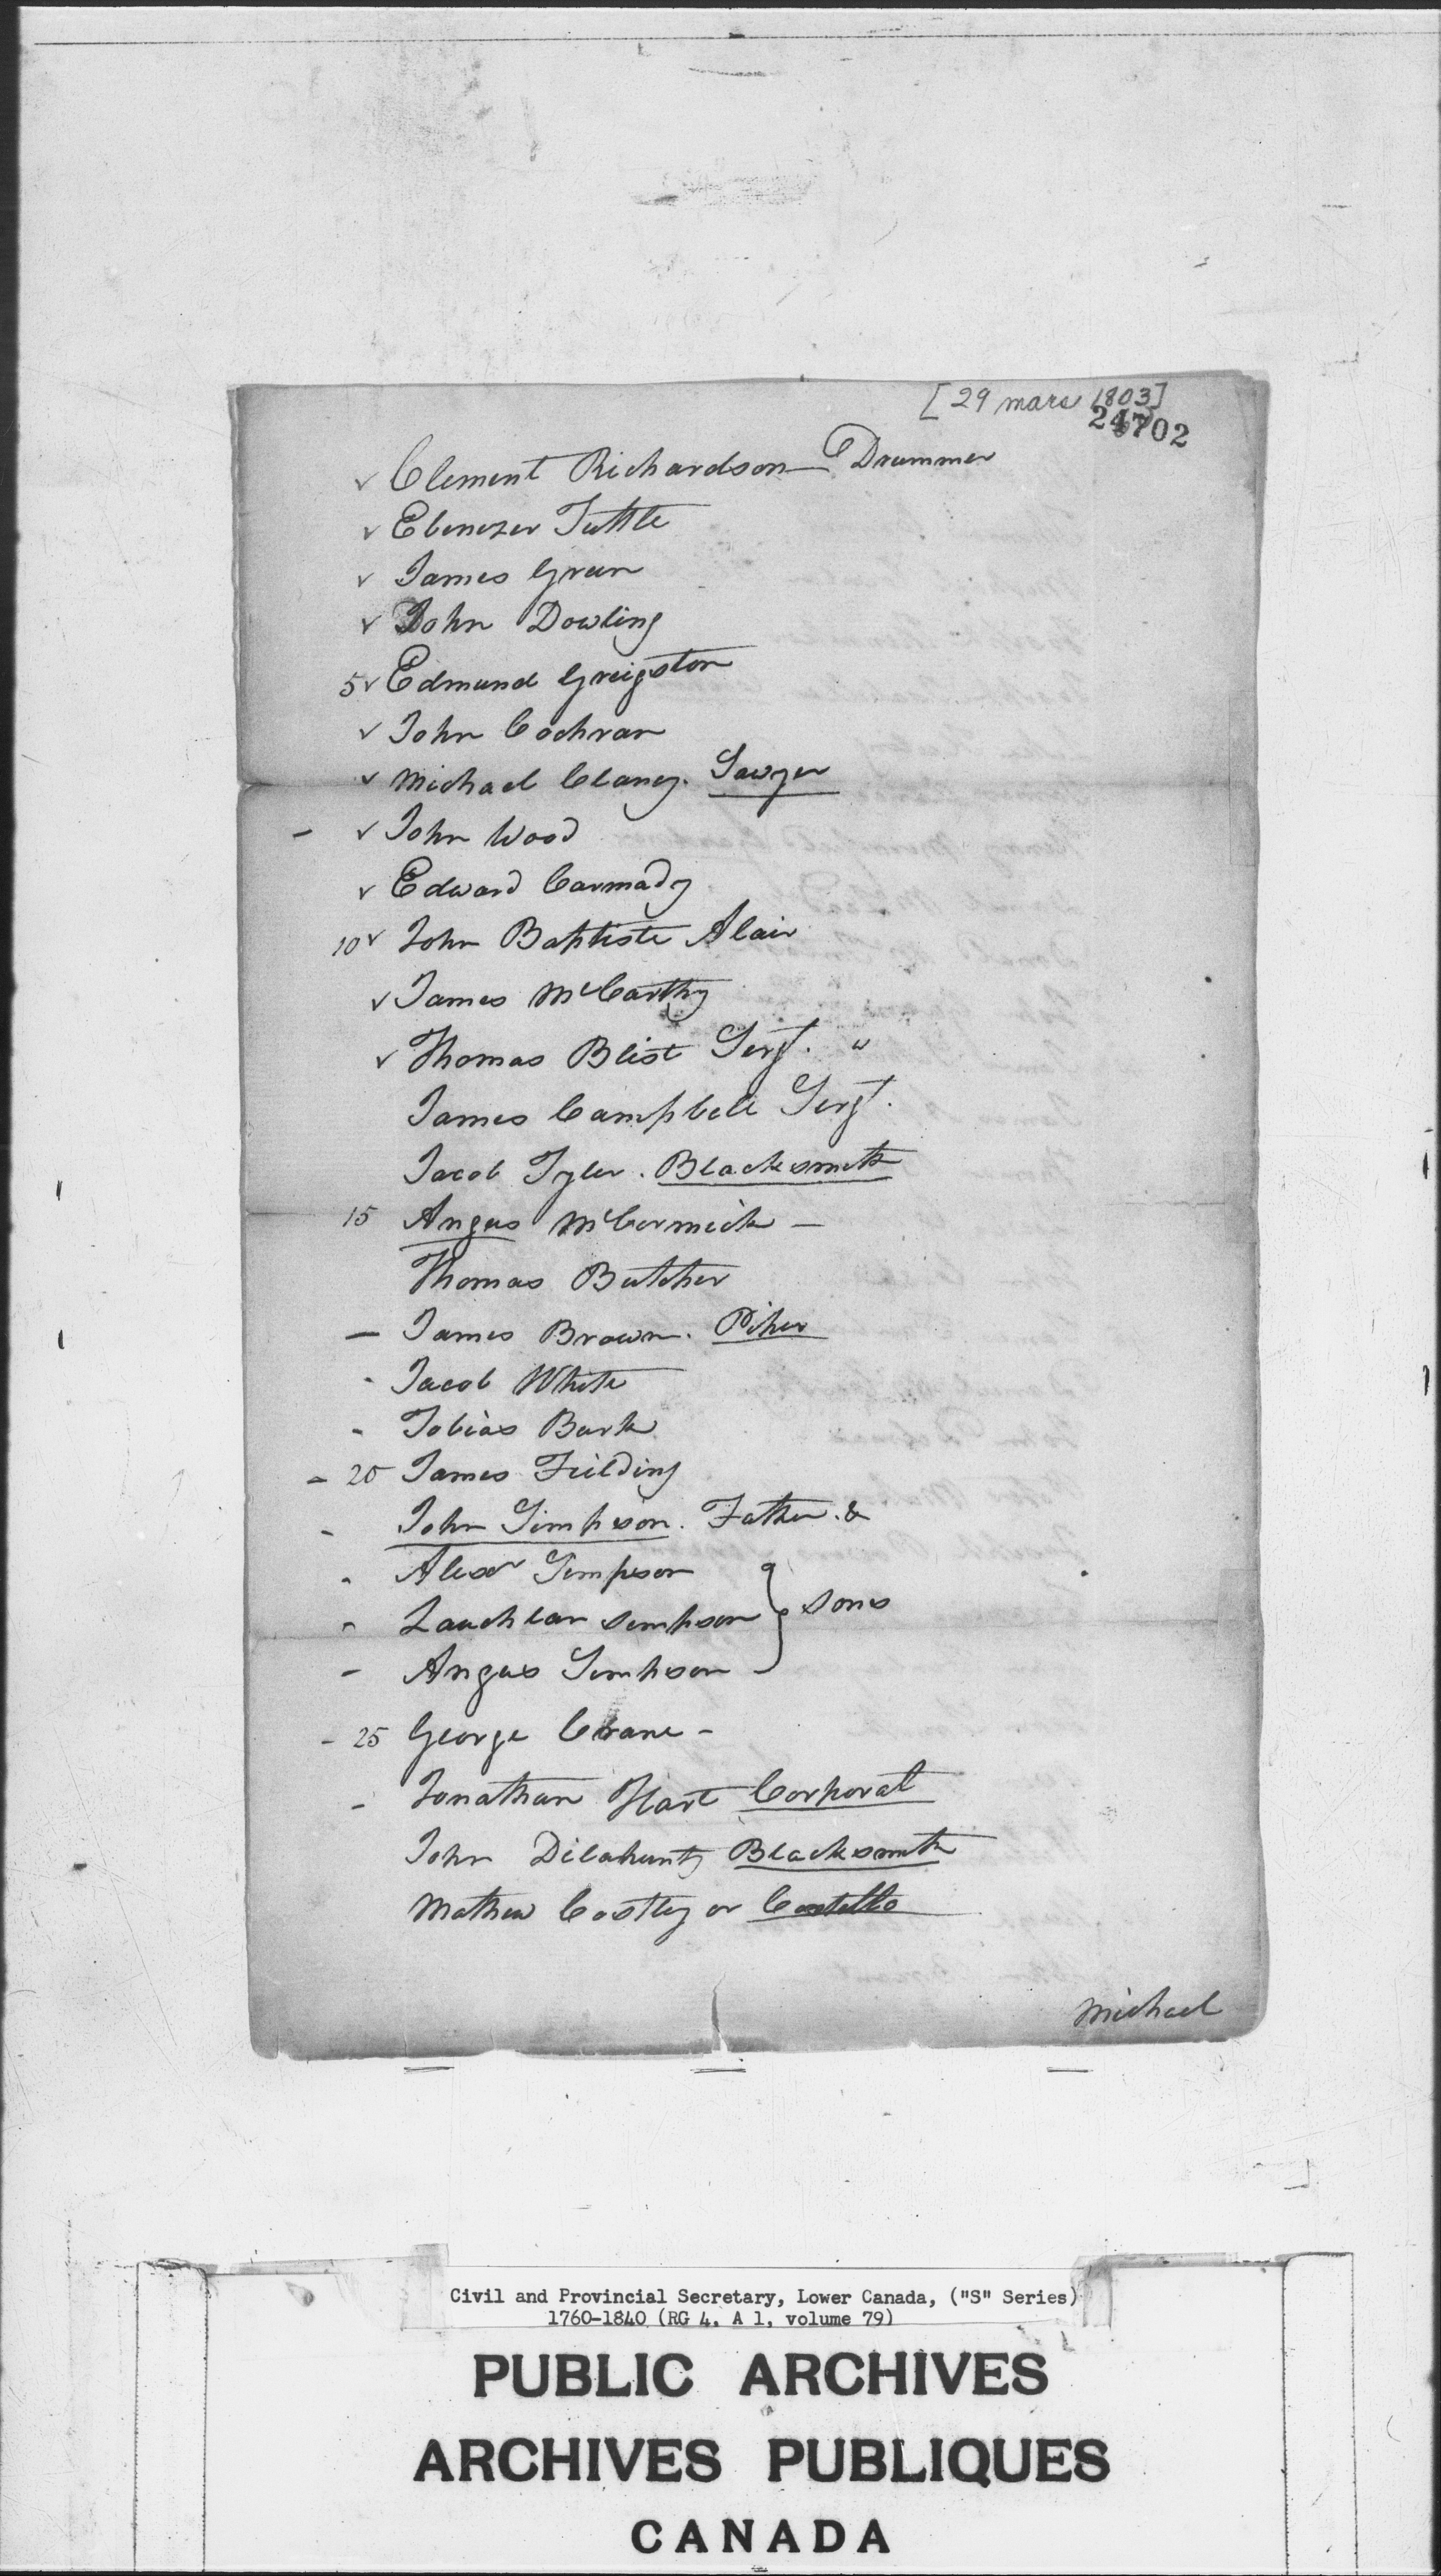 [29 mars 1803]
24702
✓ Clement Richardson — Drummer
✓ Ebenezer Tuttle
✓ James Green
✓ John Dowling
5 ✓ Edmund Greigston
✓ John Cochran
✓ Michael Clancy. Sawyer
– ✓ John Wood
✓ Edward Carmady
10 ✓ John Baptiste Alair
✓ James McCarthy
✓ Thomas Blist Sergt. "
James Campbell Sergt.
Jacob Tyler. Blacksmith
15 Angus McCormick –
Thomas Butcher
– James Brown. Piper
- Jacob White
- Tobias Burk
– 20 James Fielding
- John Simpson. Father. &
- Alexr Simpson
- Lauchlan Simpson } Sons
- Angus Simpson
– 25 George Crane –
- Jonathan Hart Corporal
John Dilahunty Blacksmith
Mathew Costley or Costello
Michael
Civil and Provincial Secretary, Lower Canada, ("S" Series)
1760-1840 (RG 4, A 1, volume 79)
PUBLIC ARCHIVES
ARCHIVES PUBLIQUES
CANADA